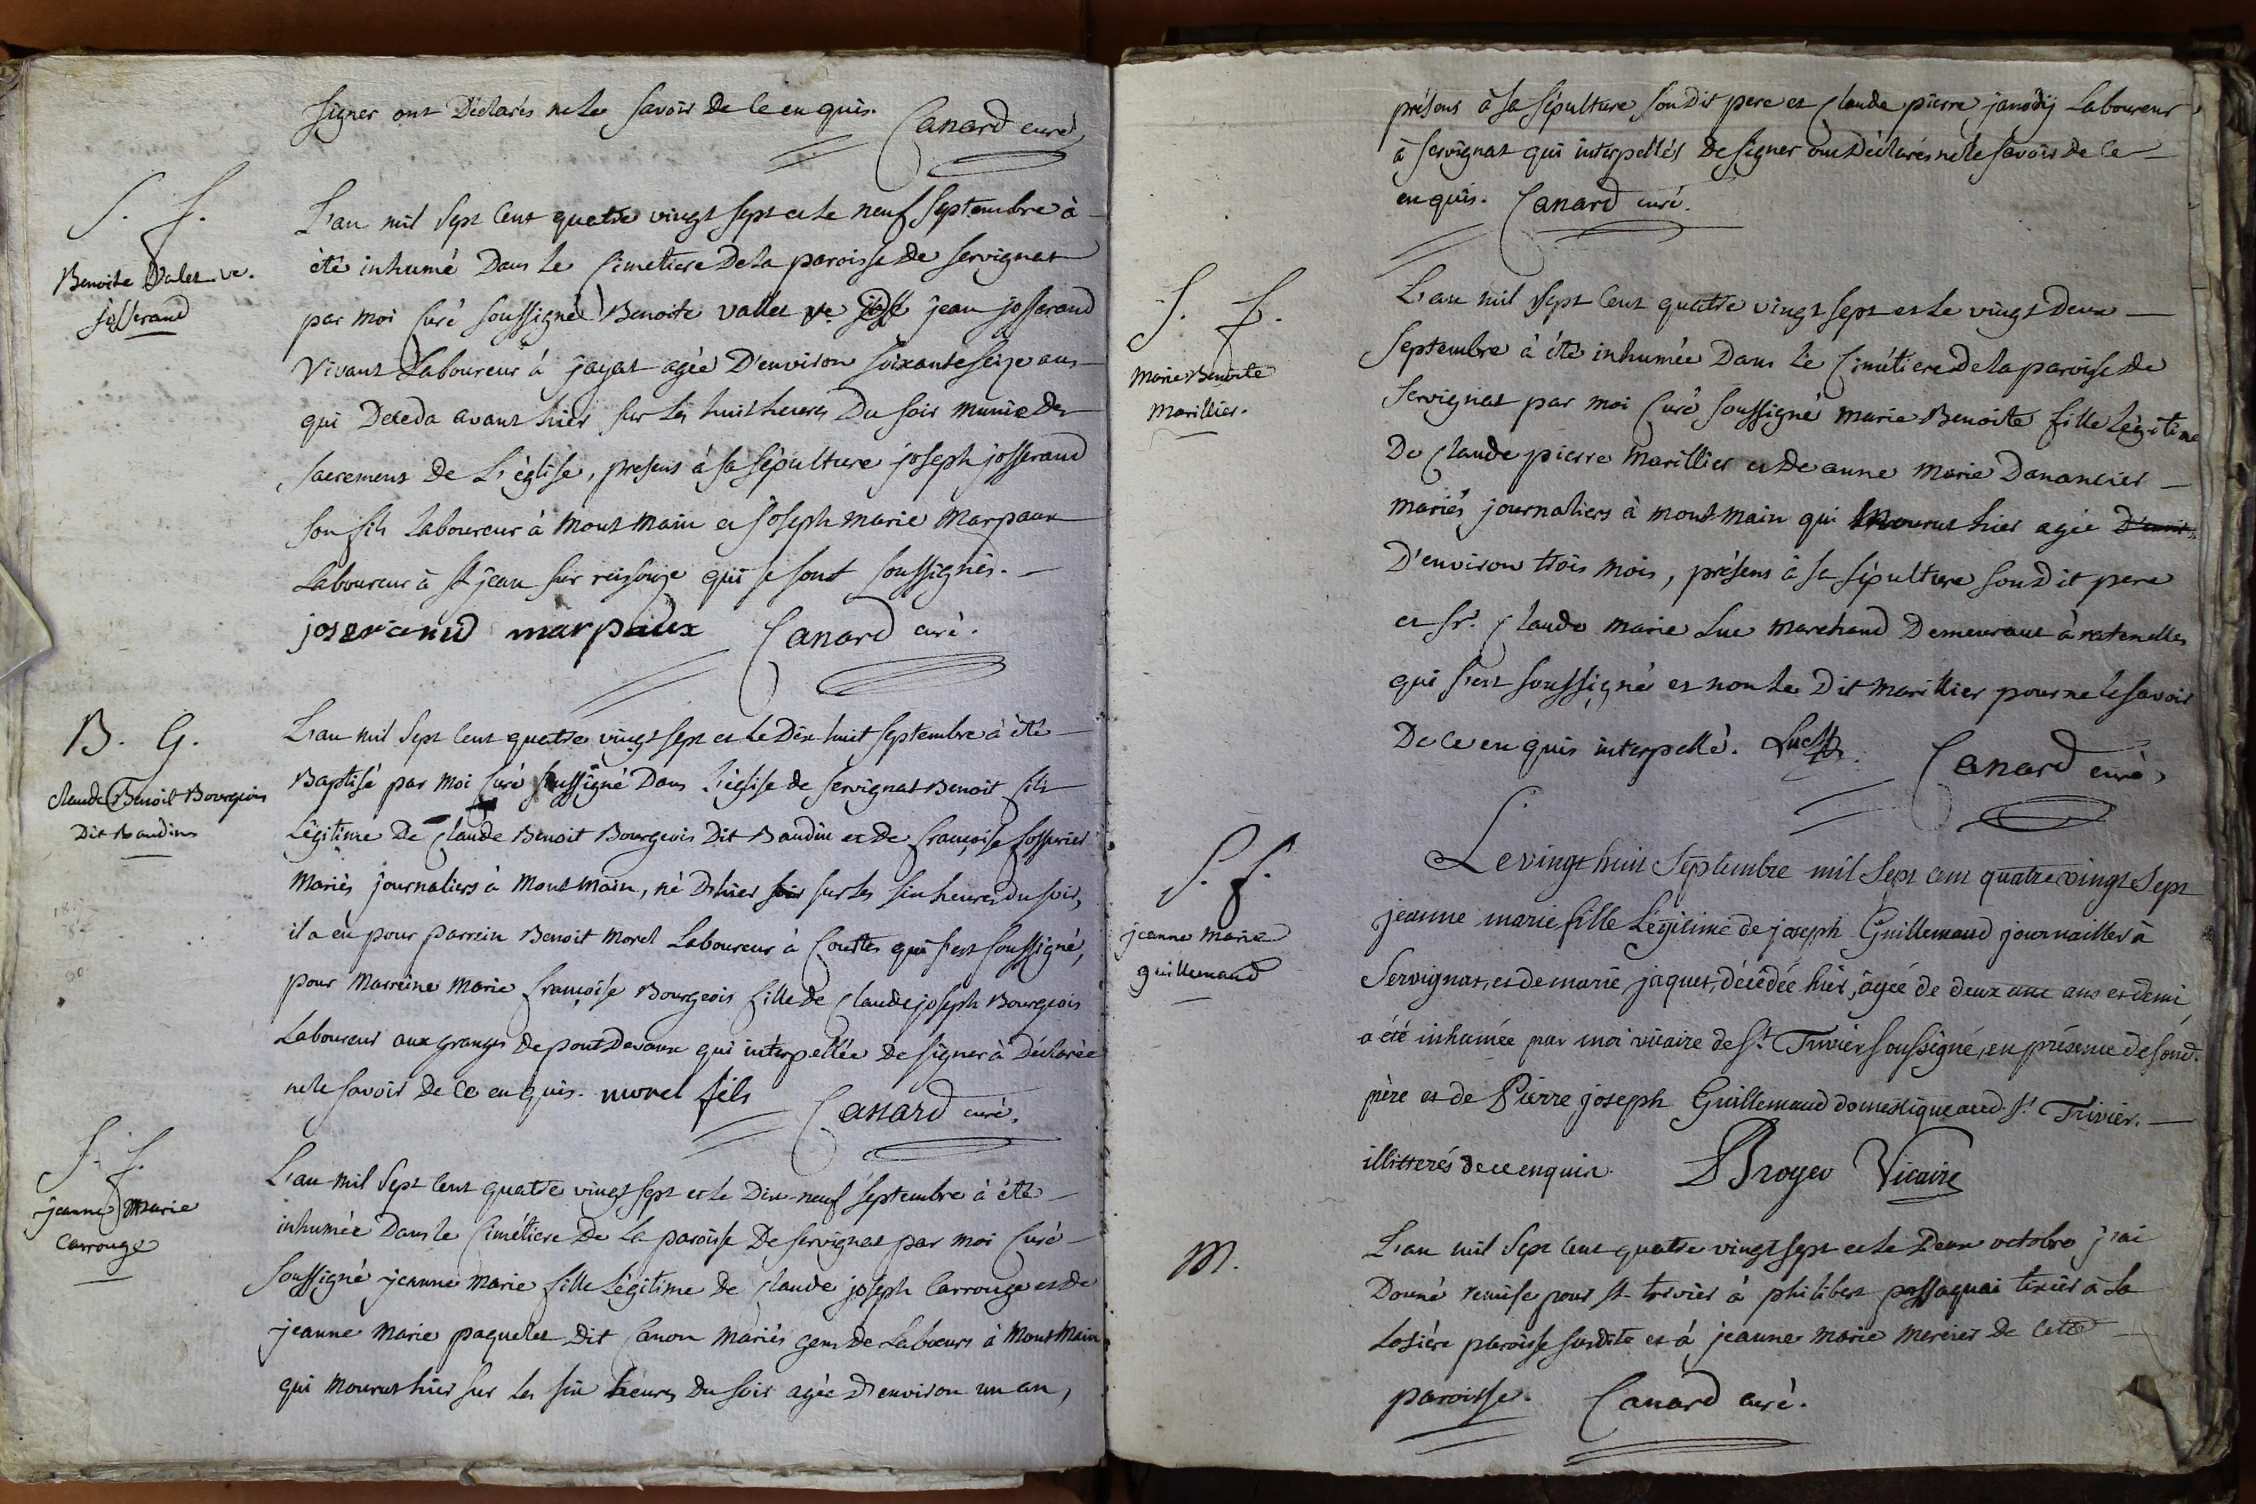 signer ont Déclarés ne le savoir de ce enquis. Canard curé
S. f.
Benoite Valet ve.
josserand
L'an mil sept cent quatre vingt sept et le neuf septembre à
été inhumé Dans le Cimetiere De la paroisse de servignat
par moi Curé soussigné Benoite vallet ve jean josserand
vivant Laboureur à jayat agée D'environ soixante seize ans
qui Deceda avant hier sur les huit heures Du soir munie Des
sacrements De L'église, presens à sa sépulture joseph josserand
son fils Laboureur à Montmain et joseph marie Marpaux
Laboureur à st jean sur reisouze qui se sont soussignés.
joserand marpaux Canard curé.
B. G.
Claude Benoit Bourgeois
Dit Baudin
L'an mil sept cent quatre vingt sept et le Dix huit septembre à été
Baptisé par moi Curé soussigné Dans L'église de servignat Benoit fils
Légitime De Claude Benoit Bourgeois Dit Baudin et De françoise
Mariés journaliers à Montmain, né D'hier sur les six heures du soir,
il a eû pour parrein Benoit Morel Laboureur à Courtes qui s'est soussigné,
pour Marreine Marie françoise Bourgeois fille de Claude joseph Bourgeois
Laboureur aux granges de pontDevaux qui interpellée De signer à Déclarée
ne le savoir de ce enquis. morel fils Canard curé.
S. f.
jeanne Marie
Carrouge
L'an mil sept cent quatre vingt sept et le Dix-neuf septembre à été
inhumée Dans le Cimétiere De la paroisse De servignat par moi Curé
soussigné jeanne Marie fille Légitime de Claude joseph Carrouge et de
jeanne Marie paquelet Dit Canon Mariés gens de Labeurs à Montmain
qui Mourut hier sur les six heures Du soir agée D'environ un an,
présens à sa sépulture son Dit pere et Claude pierre janody Laboureur
à servignat qui interpellés De signer ont Déclarés ne le savoir De ce
enquis. Canard curé.
S. f.
Marie Benoite
Marillier.
L'an mil sept cent quatre vingt sept et le vingt Deux
Septembre à été inhumée Dans le Cimétiere De la paroisse de
servignat par moi Curé soussigné Marie Benoite fille Légitime
De Claude pierre Marillier et De anne Marie Danancier
mariés journaliers à montmain qui Mourut hier agée D'envir.
D'environ trois mois, présens à sa sépulture son Dit pere
et sr. Claude Marie Luc Marchand Demeurant à ratenelles
qui s'est soussigné et non le Dit Marillier pour ne le savoir
De ce enquis interpellé. Luc Canard curé
S. f.
jeanne Marie
guillemaud
Le vingt huit Septembre mil Sept cent quatre vingt Sept
jeanne marie fille Légitime de joseph Guillemaud journaillier à
Servignat, et de marie jaquet, décédée hier, âgée de deux ans et demi,
a été inhumée par moi vicaire de St. Trivier soussigné, en présence de sond.
père et de Pierre joseph Guillemaud domestique aud. St. Trivier.
illitterés de ce enquis. Broyer Vicaire
M.
L'an mil sept cent quatre vingt sept et le Deux octobre j'ai
Donné remise pour st trivier à philibert passaquai tixier à la
Losière paroisse susdite et à jeanne Marie Mercier de cette
paroisse. Canard curé.